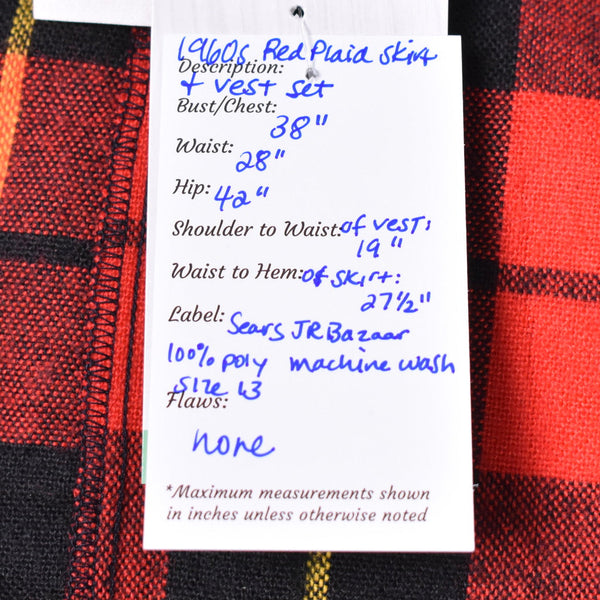 1960s Red Plaid Skirt
Description:
+ vest set
Bust/Chest:
38"
Waist:
28"
Hip: 42"
Shoulder to Waist: of vest:
19"
Waist to Hem: of skirt:
27 1/2"
Label: Sears JR Bazaar
100% poly machine wash
size 13
Flaws:
none
*Maximum measurements shown
in inches unless otherwise noted